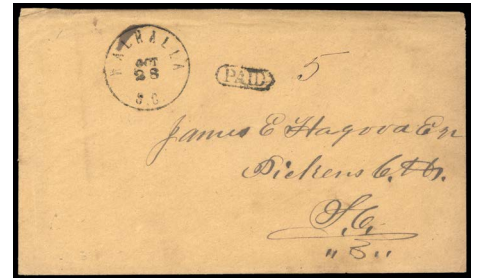 WALHALLA
OCT
28
S.C
PAID
5
James E Hagood Esq
Pickens C.H.
S.C.
"B"